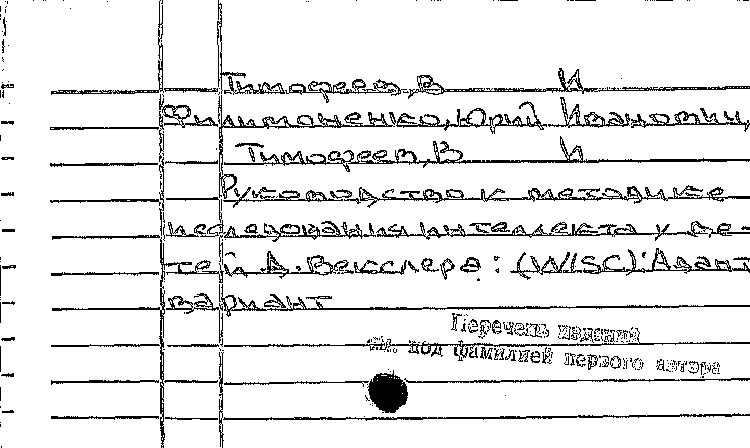 Тимофеев, В И
Филимоненко, Юрий Иванович,
Тимофеев, В И
Руководство к методике
исследования интеллекта у де-
тей Д. Векслера: (WISC): Адапт
вариант
Перечень изданий
см. под фамилией первого автора